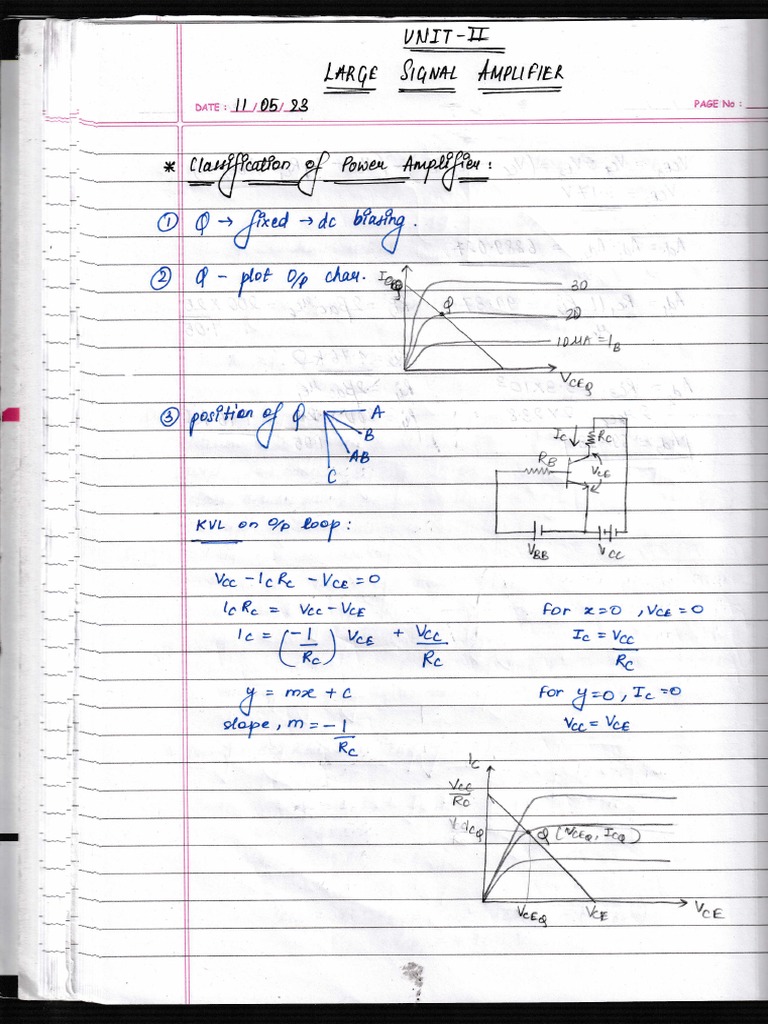 UNIT-II
LARGE SIGNAL AMPLIFIER
DATE: 11/05/23
PAGE No:
* Classification of Power Amplifier:
① Q → fixed → dc biasing.
② Q - plot O/p char.
30
Q
20
10 MA = IB
VCEQ
③ position of Q
A
B
AB
C
IC
RC
RB
VCE
VBB
VCC
KVL on o/p loop:
VCC - IC RC - VCE = 0
IC RC = VCC - VCE
for x=0, VCE = 0
IC = (-1/RC) VCE + VCC/RC
IC = VCC/RC
y = mx + c
for y=0, IC=0
slope, m = -1/RC
VCC = VCE
IC
VCC/RC
Q (VCEQ, ICQ)
VCEQ
VCE
VCE